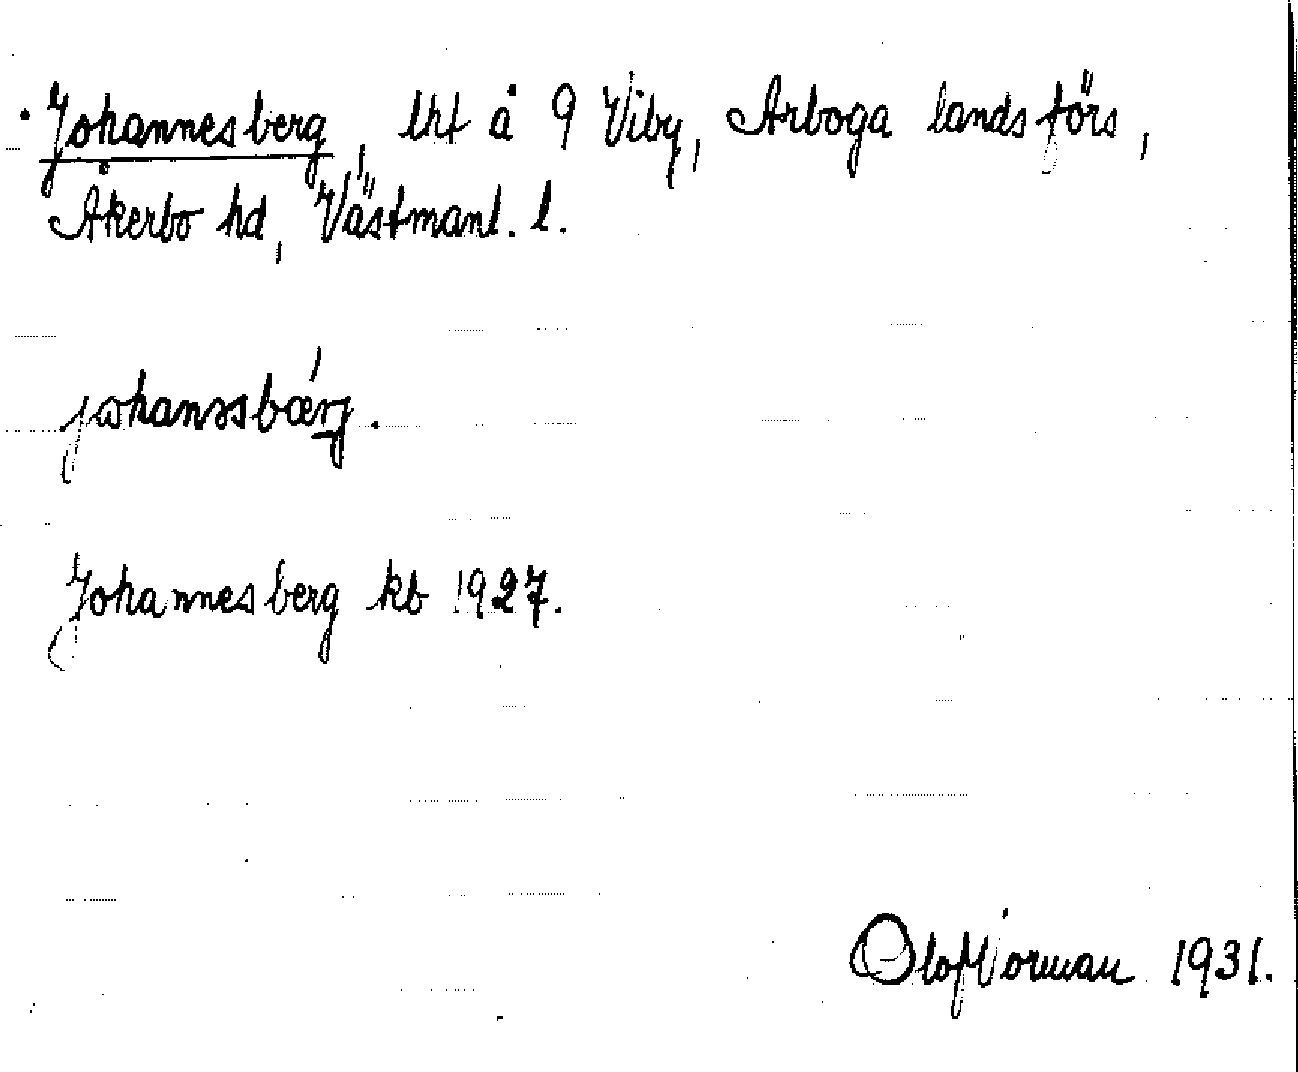 Johannesberg, lht å 9 Viby, Arboga landsförs,
Åkerbo hd, Västmanl. l.
Johannesberg kb 1927.
Olof Norman 1931.